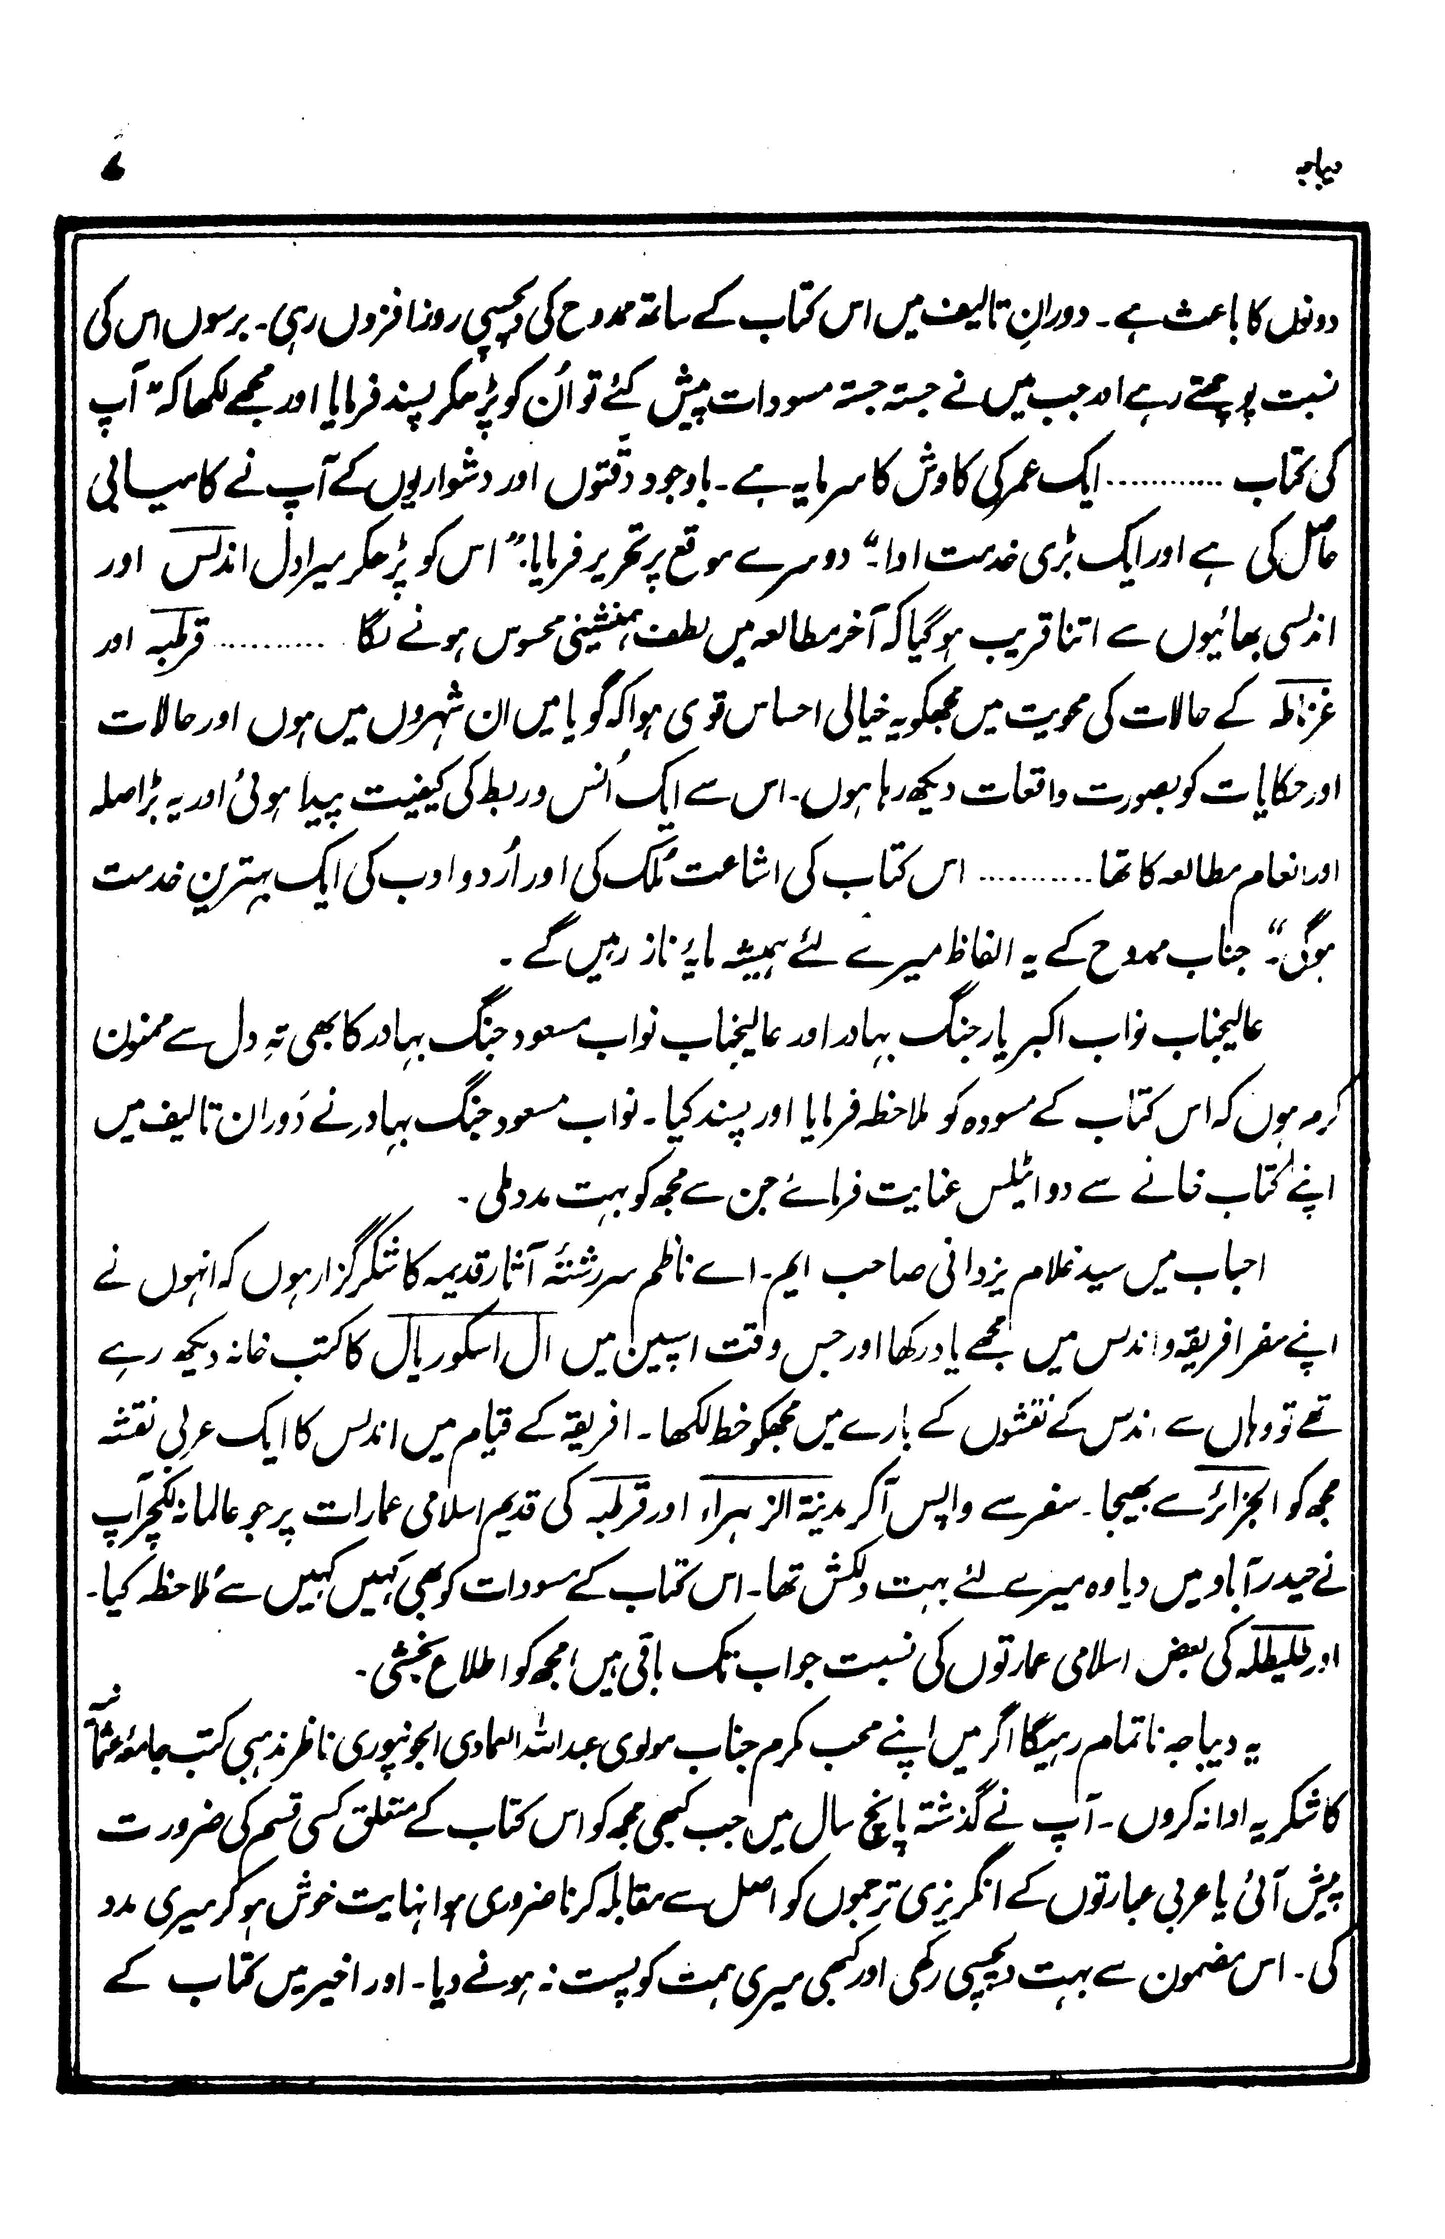 دیباجہ
دونوں کا باعث ہے۔ دورانِ تالیف میں اس کتاب کے ساتھ ممدوح کی دلچسپی روزافزوں رہی۔ برسوں اس کی
نسبت پوچھتے رہے اور جب میں نے جستہ جستہ مسودات پیش کئے تو اُن کو پڑھکر پسند فرمایا اور مجھے لکھا کہ ”آپ
کی کتاب ............ ایک عمر کی کاوش کا سرمایہ ہے۔ باوجود دقّتوں اور دشواریوں کے آپ نے کامیابی
حاصل کی ہے اور ایک بڑی خدمت ادا۔“ دوسرے موقع پر تحریر فرمایا:” اس کو پڑھکر میرا دل اندلس اور
اندلسی بھائیوں سے اتنا قریب ہوگیا کہ آخر مطالعہ میں لطف ہمنشینی محسوس ہونے لگا ........... قرطبہ اور
غرناطہ کے حالات کی محویت میں مجھکو یہ خیالی احساس قوی ہوا کہ گویا میں ان شہروں میں ہوں اور حالات
اور حکایات کو بصورت واقعات دیکھ رہا ہوں۔ اس سے ایک اُنس و ربط کی کیفیت پیدا ہوئی اور یہ بڑا صلہ
اور انعام مطالعہ کا تھا ........... اس کتاب کی اشاعت مُلک کی اور اُردو ادب کی ایک بہترین خدمت
ہوگی۔“ جناب ممدوح کے یہ الفاظ میرے لئے ہمیشہ مایۂ ناز رہیں گے۔
عالیجناب نواب اکبر یار جنگ بہادر اور عالیجناب نواب مسعود جنگ بہادر کا بھی تہِ دل سے ممنون
کرم ہوں کہ اس کتاب کے مسودہ کو ملاحظہ فرمایا اور پسند کیا۔ نواب مسعود جنگ بہادر نے دَوران تالیف میں
اپنے کتاب خانے سے دو اٹلس عنایت فرمائے جن سے مجھ کو بہت مدد ملی۔
احباب میں سید غلام یزدانی صاحب ایم۔اے ناظم سررشتۂ آثار قدیمہ کا شکر گزار ہوں کہ انہوں نے
اپنے سفر افریقہ و اندلس میں مجھے یاد رکھا اور جس وقت اسپین میں ال اسکوریال کا کتب خانہ دیکھ رہے
تھے تو وہاں سے اندلس کے نقشوں کے بارے میں مجھکو خط لکھا۔ افریقہ کے قیام میں اندلس کا ایک عربی نقشہ
مجھ کو الجزائر سے بھیجا۔ سفر سے واپس آکر مدینۃ الزہراء اور قرطبہ کی قدیم اسلامی عمارات پر جو عالمانہ لکچر آپ
نے حیدر آباد میں دیا وہ میرے لئے بہت دلکش تھا۔ اس کتاب کے مسودات کو بھی کہیں کہیں سے ملاحظہ کیا۔
اور طلیطلہ کی بعض اسلامی عمارتوں کی نسبت جو اب تک باقی ہیں مجھ کو اطلاع بخشی۔
یہ دیباجہ ناتمام رہیگا اگر میں اپنے محب مکرم جناب مولوی عبداللہ العمادی الجونپوری ناظر مذہبی کتب جامعۂ عثمانیہ
کا شکریہ ادا نہ کروں۔ آپ نے گذشتہ پانچ سال میں جب کبھی مجھ کو اس کتاب کے متعلق کسی قسم کی ضرورت
پیش آئی یا عربی عبارتوں کے انگریزی ترجموں کو اصل سے مقابلہ کرنا ضروری ہوا نہایت خوش ہوکر میری مدد
کی۔ اس مضمون سے بہت دلچسپی رکھی اور کبھی میری ہمت کو پست نہ ہونے دیا۔ اور اخیر میں کتاب کے